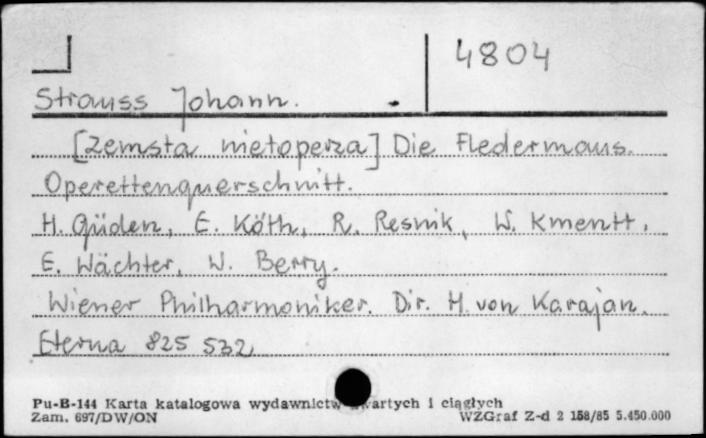 4804
Strauss Johann.
[Zemsta nietoperza] Die Fledermaus.
Operettenquerschnitt.
H. Güden, E. Köth, R. Resnik, W. Kmentt,
E. Wächter, W. Berry.
Wiener Philharmoniker. Dir. H. von Karajan.
Eterna 825 532
Pu-B-144 Karta katalogowa wydawnictw wartych i ciągłych
Zam. 697/DW/ON WZGraf Z-d 2 158/85 5.450.000